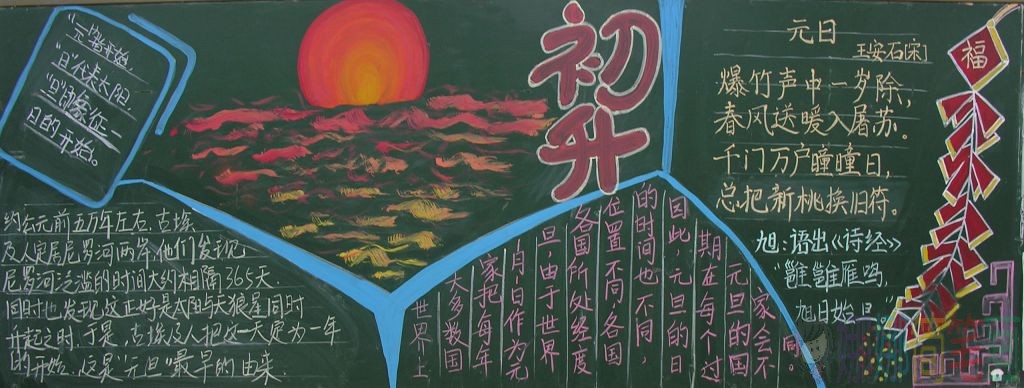 “元”者开始
“旦”代表太阳,
“旦”即象征一
日的开始。
初升
约公元前五万年左右,古埃
及人定居尼罗河两岸,他们发现
尼罗河泛滥的时间大约相隔365天
同时也发现,这正好是太阳与天狼星同时
升起之时,于是,古埃及人把这一天定为一年
的开始,这是“元旦”最早的由来.
世界上
大多数国
家把每年
1月1日作为元
旦,由于世界
各国所处经度
位置不同,各国
的时间也不同,
因此,元旦的日
期在每个过
元旦的国
家会不
同。
元日
王安石[宋]
爆竹声中一岁除,
春风送暖入屠苏。
千门万户曈曈日,
总把新桃换旧符。
旭:语出《诗经》
“雝雝雁鸣,
旭日始旦.”
福